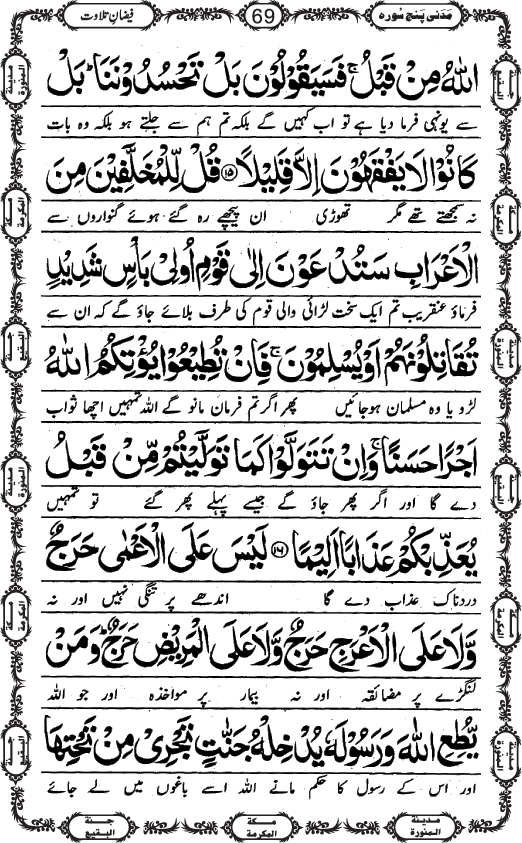 مَدَنی پَنج سُورہ
69
فیضانِ تلاوت
اللّٰهُ مِنْ قَبْلُ ۚ فَسَیَقُوْلُوْنَ بَلْ تَحْسُدُوْنَنَا ؕ بَلْ
سے یونہی فرما دیا ہے تو اب کہیں گے بلکہ تم ہم سے جلتے ہو بلکہ وہ بات
كَانُوْا لَا یَفْقَهُوْنَ اِلَّا قَلِیْلًا ﴿۱۵﴾ قُلْ لِّلْمُخَلَّفِیْنَ مِنَ
نہ سمجھتے تھے مگر تھوڑی ان پیچھے رہ گئے ہوئے گنواروں سے
الْاَعْرَابِ سَتُدْعَوْنَ اِلٰى قَوْمٍ اُولِیْ بَاْسٍ شَدِیْدٍ
فرماؤ عنقریب تم ایک سخت لڑائی والی قوم کی طرف بلائے جاؤ گے کہ ان سے
تُقَاتِلُوْنَهُمْ اَوْ یُسْلِمُوْنَ ۚ فَاِنْ تُطِیْعُوْا یُؤْتِكُمُ اللّٰهُ
لڑو یا وہ مسلمان ہوجائیں پھر اگر تم فرمان مانو گے اللہ تمہیں اچھا ثواب
اَجْرًا حَسَنًا ۚ وَ اِنْ تَتَوَلَّوْا كَمَا تَوَلَّیْتُمْ مِّنْ قَبْلُ
دے گا اور اگر پھر جاؤ گے جیسے پہلے پھر گئے تو تمہیں
یُعَذِّبْكُمْ عَذَابًا اَلِیْمًا ﴿۱۶﴾ لَیْسَ عَلَى الْاَعْمٰى حَرَجٌ
دردناک عذاب دے گا اندھے پر تنگی نہیں اور نہ
وَّ لَا عَلَى الْاَعْرَجِ حَرَجٌ وَّ لَا عَلَى الْمَرِیْضِ حَرَجٌ ؕ وَ مَنْ
لنگڑے پر مضائقہ اور نہ بیمار پر مواخذہ اور جو اللہ
یُّطِعِ اللّٰهَ وَ رَسُوْلَهٗ یُدْخِلْهُ جَنّٰتٍ تَجْرِیْ مِنْ تَحْتِهَا
اور اس کے رسول کا حکم مانے اللہ اسے باغوں میں لے جائے
مدینۃ المنورۃ
مکۃ المکرمۃ
جنۃ البقیع